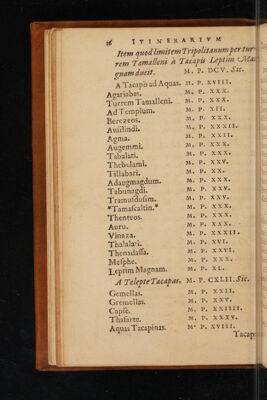 26 ITINERARIVM
Item quod limitem Tripolitanum per tur-
rem Tamalleni à Tacapis Leptim Mag
nam ducit. M. P. DCV. Sic.
A Tacapis ad Aquas. M. P. XVIII.
Agariabas. M. P. XXX.
Turrem Tamalleni. M. P. XXX.
Ad Templum. M. P. XII.
Berezeos. M. P. XXX.
Ausilindi. M. P. XXXII.
Agma. M. P. XXII.
Augemmi. M. P. XXX.
Tabalati. M. P. XXX.
Thebelami. M. P. XXV.
Tillabari. M. P. XX.
Adaugmagdum. M. P. XXX.
Tabunagdi. M. P. XXV.
Tramusdusim. M. P. XXV.
*Tamascaltin.* M. P. XXX.
Thenteos. M. P. XXX.
Auru. M. P. XXX.
Vinaza. M. P. XXXII.
Thalalati. M. P. XVI.
Thenadassa. M. P. XXVI.
Mesphe. M. P. XXX.
Leptim Magnam. M. P. XL.
A Telepte Tacapas. M. P. CXLII. Sic.
Gemellas. M. P. XXII.
Gremellas. M. P. XXV.
Capse. M. P. XXIIII.
Thasarte. M. P. XXXV.
Aquas Tacapinas. M. P. XVIII.
Tacap